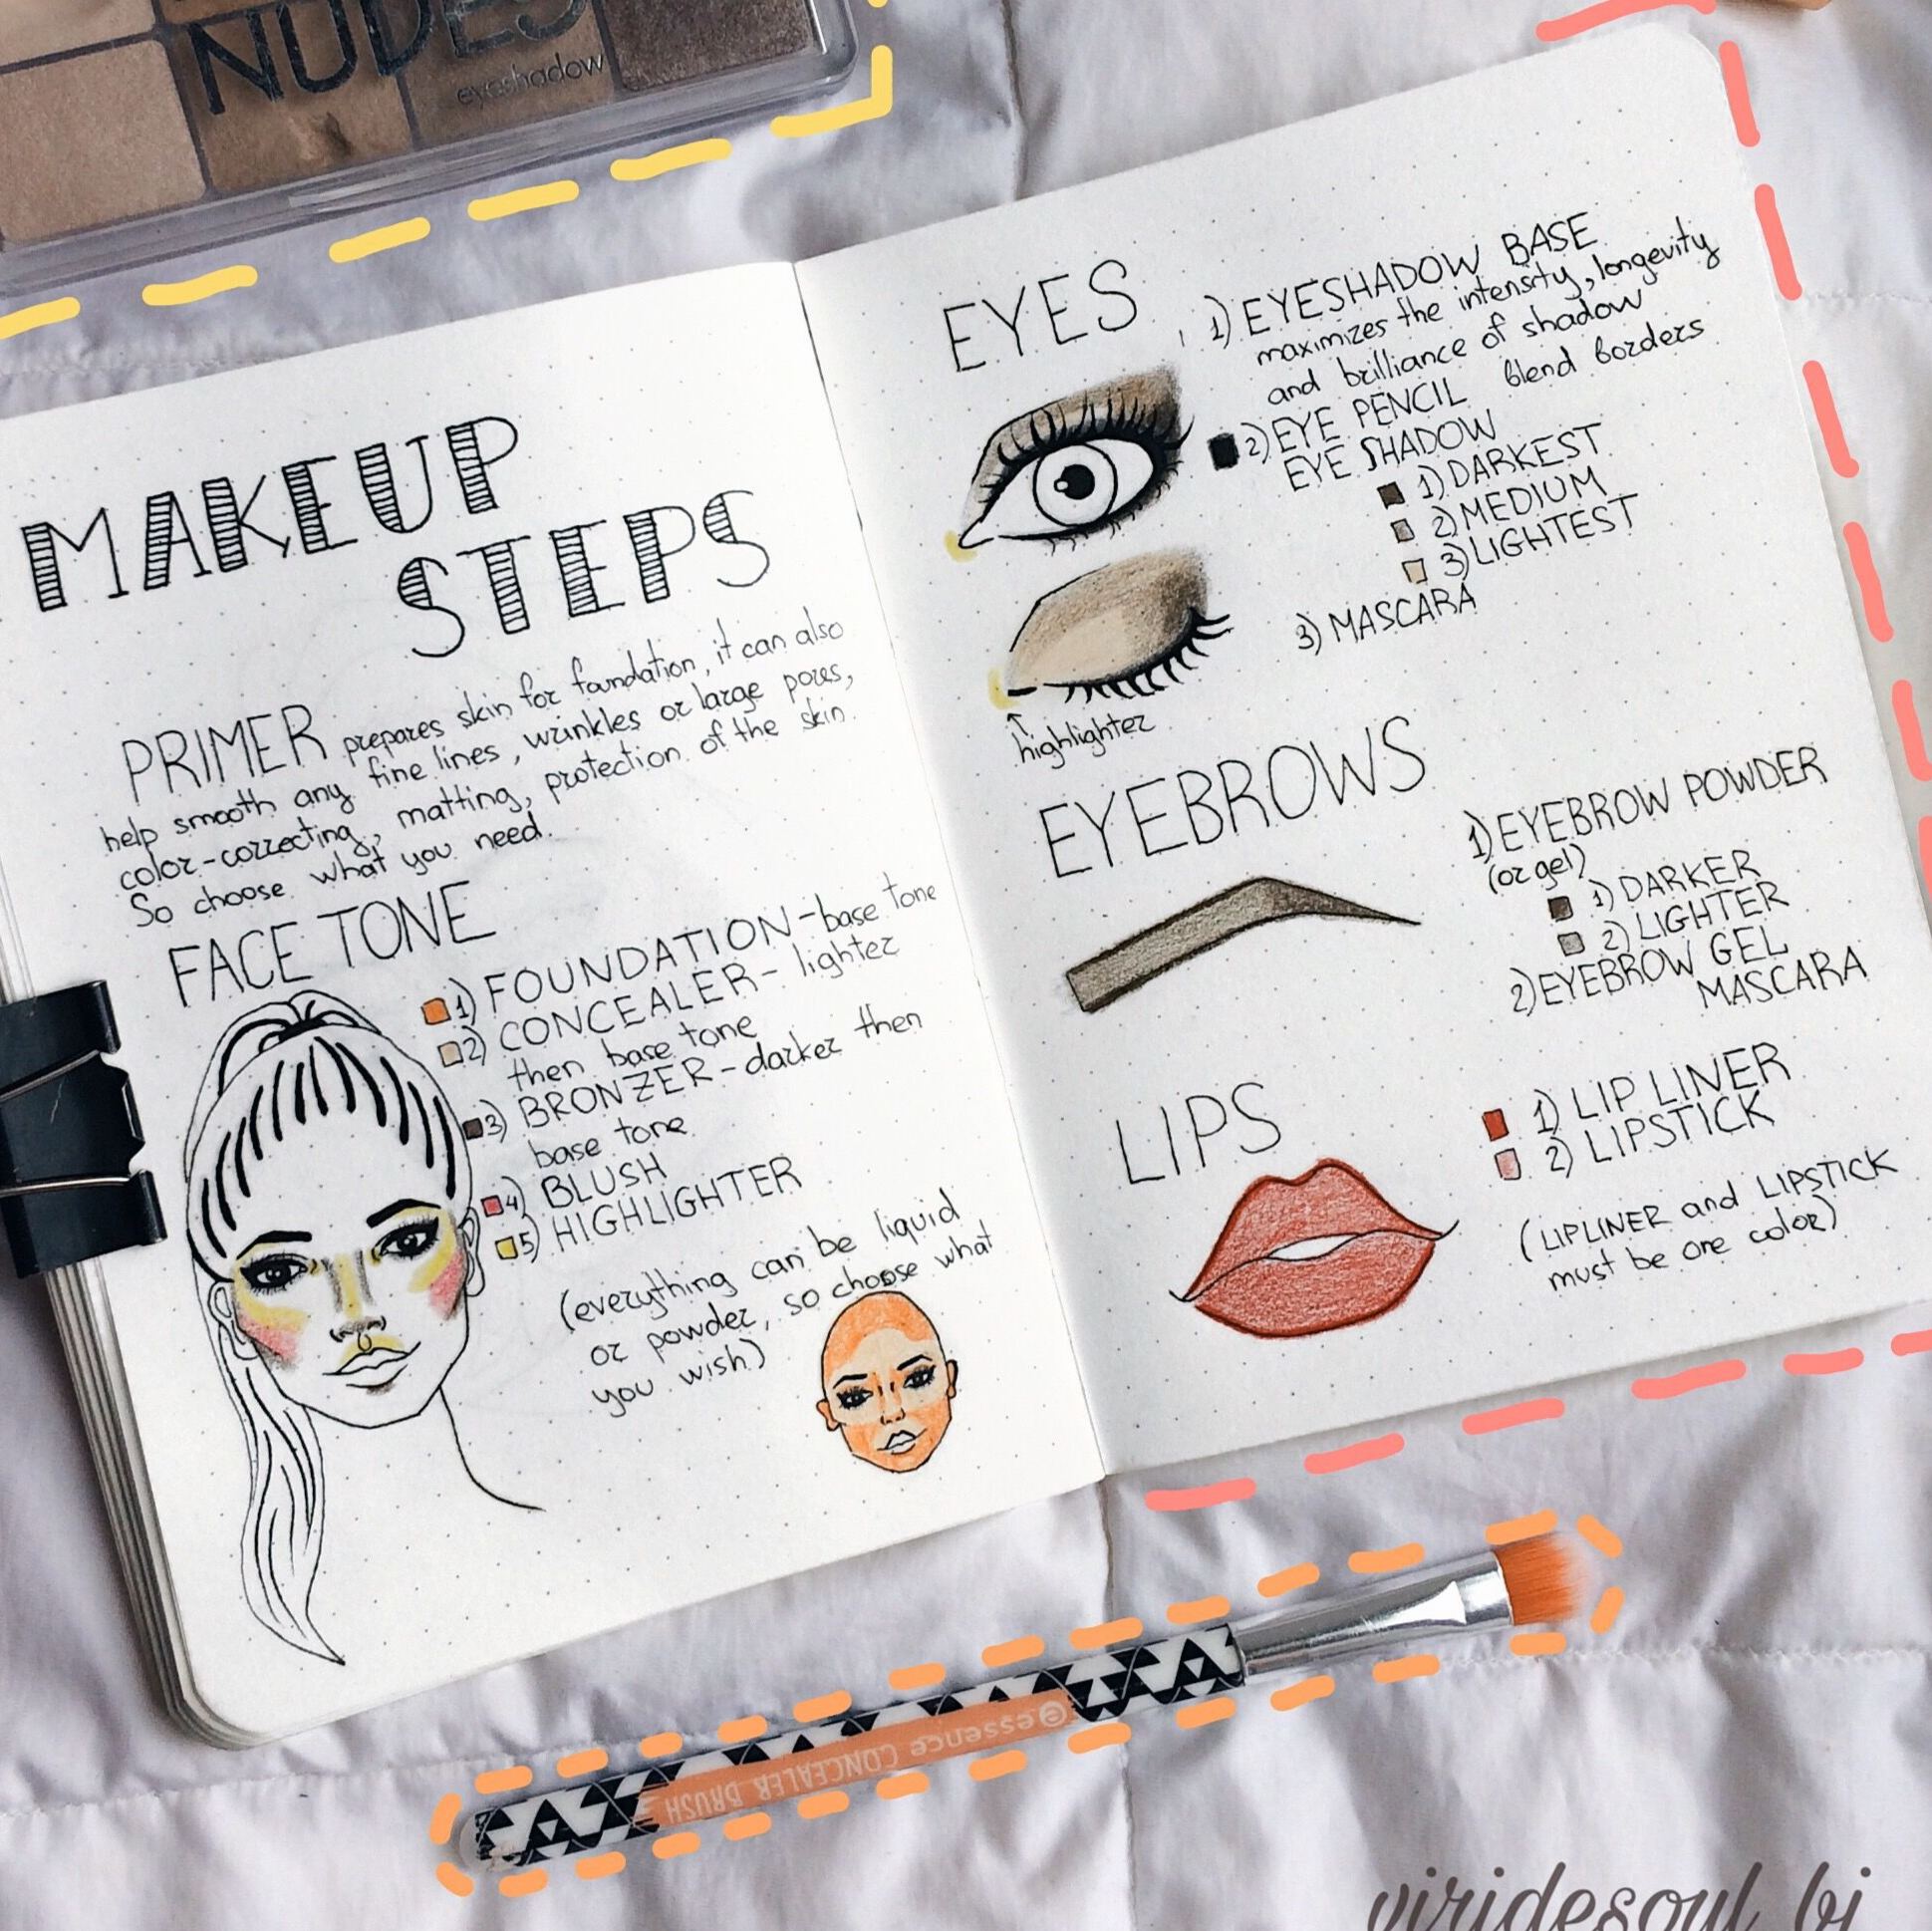 NUDES
eyeshadow
MAKEUP
STEPS
PRIMER prepares skin for foundation, it can also
help smooth any fine lines, wrinkles or large pores,
color-correcting, matting, protection of the skin.
So choose what you need.
FACE TONE
1) FOUNDATION - base tone
2) CONCEALER - lighter
then base tone
3) BRONZER - darker then
base tone
4) BLUSH
5) HIGHLIGHTER
(everything can be liquid
or powder, so choose what
you wish)
EYES
1) EYESHADOW BASE
maximizes the intensity, longevity
and brilliance of shadow
2) EYE PENCIL blend borders
EYE SHADOW
1) DARKEST
2) MEDIUM
3) LIGHTEST
3) MASCARA
highlighter
EYEBROWS
1) EYEBROW POWDER
(or gel)
1) DARKER
2) LIGHTER
2) EYEBROW GEL
MASCARA
LIPS
1) LIP LINER
2) LIPSTICK
(LIPLINER and LIPSTICK
must be one color)
essence CONCEALER BRUSH
viridesoul_bj